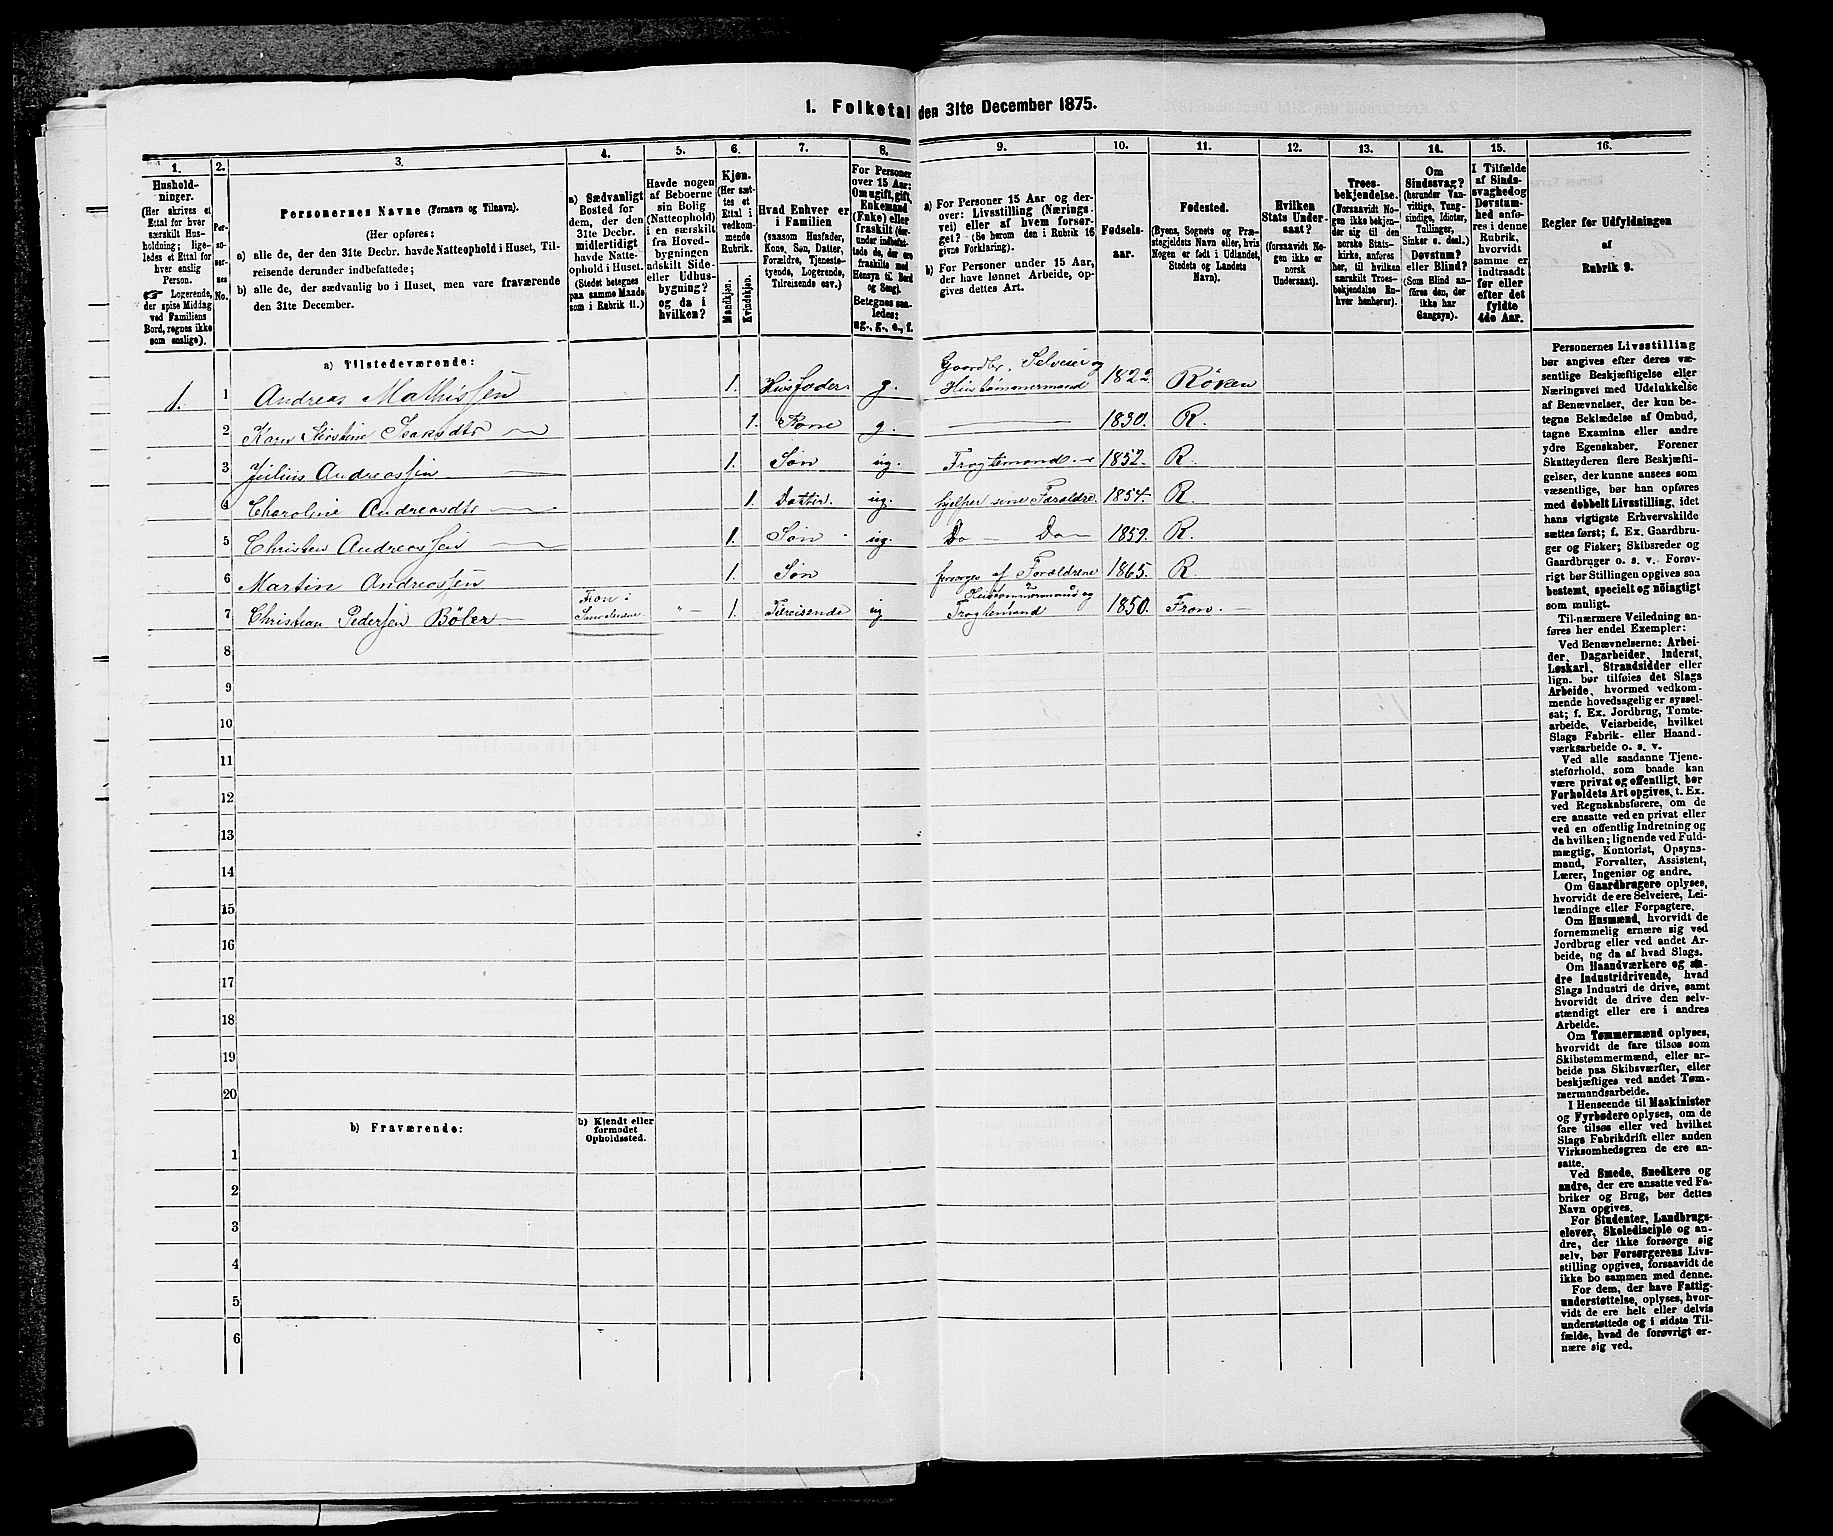 1. Folketal den 31te December 1875.
1.
2.
3.
4.
5.
6.
7.
8.
9.
10.
11.
12.
13.
14.
15.
16.
Hushold-
ninger.
(Her skrives et
Ettal for hver
særskilt Hus-
holdning; lige-
ledes et Ettal for
hver enslig
Person.
☞ Logerende,
der spise Middag
ved Familiens
Bord, regnes ikke
som enslige).
Per-
so-
ner-
nes
No.
Personernes Navne (Fornavn og Tilnavn).
(Her opføres:
a) alle de, der den 31te Decbr. havde Natteophold i Huset, Til-
reisende derunder indbefattede;
b) alle de, der sædvanlig bo i Huset, men vare fraværende
den 31te December.
a) Sædvanligt
Bosted for
dem, der den
31te Decbr.
midlertidigt
havde Natte-
ophold i Huset.
(Stedet betegnes
paa samme Maade
som i Rubrik 11.)
Havde nogen
af Beboerne
sin Bolig
(Natteophold)
i en særskilt
fra Hoved-
bygningen
adskilt Side-
eller Udhus-
bygning?
og da i
hvilken?
Kjøn.
(Her sæt-
tes et
Ettal i
vedkom-
mende
Rubrik.
Mandkjøn.
Kvindekjøn.
Hvad Enhver er
i Familien
(saasom Husfader,
Kone, Søn, Datter,
Forældre, Tjeneste-
tyende, Logerende,
Tilreisende osv.)
For Personer
over 15 Aar:
Om ugift, gift,
Enkemand
(Enke) eller
fraskilt (der-
under indbefat-
tede de, der ere
fraskilte med
Hensyn til Bord
og Seng).
Betegnes saa-
ledes:
ug., g., e., f.
a) For Personer 15 Aar og der-
over: Livsstilling (Nærings-
vei) eller af hvem forsør-
get? (Se herom den i Rubrik 16
givne Forklaring).
b) For Personer under 15 Aar,
der have lønnet Arbeide, op-
gives dettes Art.
Fødsels-
aar.
Fødested.
(Byens, Sognets og Præ-
stegjeldets Navn eller, hvis
Nogen er født i Udlandet,
Stedets og Landets
Navn).
Hvilken
Stats Under-
saat?
(forsaavidt No-
gen ikke er
norsk
Undersaat).
Troes-
bekjendelse.
(Forsaavidt No-
gen ikke bekjen-
der sig til den
norske Stats-
kirke, anføres
her, til hvilken
særskilt Troes-
bekjendelse En-
hver henhører).
Om
Sindssvag?
(herunder Van-
vittige, Tung-
sindige, Idioter,
Tullinger,
Sinker o. desl.)
Døvstum?
eller Blind?
(Som Blind an-
føres den, der
ikke har
Gangsyn).
I Tilfælde
af Sinds-
svaghed og
Døvstum-
hed anfø-
res i denne
Rubrik,
hvorvidt
samme er
indtraadt
før eller
efter det
fyldte
4de Aar.
Regler for Udfyldningen
af
Rubrik 9.
a) Tilstedeværende:
1. 1 Andreas Mathissen 1. Husfader g. Gaardbr. Selveier og
Hustømmermand 1822 Røken
2 Karn Kirstine Isaksdtr 1. Kone g. 1830. R.
3 Julius Andreassen 1. Søn ug. Fragtemand. 1852. R.
4 Charoline Andreasdtr 1. Datter ug. hjelper sine Foreldre. 1854. R.
5 Christen Andreassen 1. Søn ug. Do Do 1859. R.
6 Martin Andreassen 1. Søn forsørges af Forældrene 1865. R.
7 Christian Pedersen Bøler Fron i
" 1. Tilreisende ug Hustømmermand og
Fragtemand 1850. Fron.
8
9
10
11
12
13
14
15
16
17
18
19
20
b) Fraværende:
b) Kjendt eller
formodet
Opholdssted.
1
2
3
4
5
6
Personernes Livsstilling
bør angives efter deres væ-
sentlige Beskjæftigelse eller
Næringsvei med Udelukkelse
af Benævnelser, der kun be-
tegne Beklædelse af Ombud,
tagne Examina eller andre
ydre Egenskaber. Forener
Skatteyderen flere Beskjæfti-
gelser, der kunne ansees som
væsentlige, bør han opføres
med dobbelt Livsstilling, idet
hans vigtigste Erhvervskilde
sættes først; f. Ex. Gaardbru-
ger og Fisker; Skibsreder og
Gaardbruger o. s. v. Forøv-
rigt bør Stillingen opgives saa
bestemt, specielt og nøiagtigt
som muligt.
Til nærmere Veiledning an-
føres her endel Exempler:
Ved Benævnelserne: Arbei-
der, Dagarbeider, Inderst,
Løskarl, Strandsidder eller
lign. bør tilføies det Slags
Arbeide, hvormed vedkom-
mende hovedsagelig er syssel-
sat; f. Ex. Jordbrug, Tomte-
arbeide, Veiarbeide, hvilket
Slags Fabrik- eller Haand-
værksarbeide o. s. v.
Ved alle saadanne Tjene-
steforhold, som baade kan
være privat og offentligt, bør
Forholdets Art opgives, t. Ex.
ved Regnskabsførere, om de
ere ansatte ved en privat eller
ved en offentlig Indretning og
da hvilken; lignende ved Fuld-
mægtig, Kontorist, Opsyns-
mand, Forvalter, Assistent,
Lærer, Ingeniør og andre.
Om Gaardbrugere oplyses,
hvorvidt de ere Selveiere, Lei-
lændinge eller Forpagtere.
Om Husmænd, hvorvidt de
fornemmelig ernære sig ved
Jordbrug eller ved andet Ar-
beide, og da af hvad Slags.
Om Haandværkere og an-
dre Industridrivende, hvad
Slags Industri de drive, samt
hvorvidt de drive den selv-
stændigt eller ere i andres
Arbeide.
Om Tømmermænd oplyses,
hvorvidt de fare tilsøs som
Skibstømmermænd, eller ar-
beide paa Skibsværfter, eller
beskjæftiges ved andet Tøm-
mermandsarbeide.
I Henseende til Maskinister
og Fyrbødere oplyses, om de
fare tilsøs eller ved hvilket
Slags Fabrikdrift eller anden
Virksomhedsgren de ere an-
satte.
Ved Smede, Snedkere og
andre, der ere ansatte ved Fa-
briker og Brug, bør dettes
Navn opgives.
For Studenter, Landbrugs-
elever, Skoledisciple og an-
dre, der ikke forsørge sig
selv, bør Forsørgerens Livs-
stilling opgives, forsaavidt de
ikke bo sammen med denne.
For dem, der have Fattig-
understøttelse, oplyses, hvor-
vidt de ere helt eller delvis
understøttede og i sidste Til-
fælde, hvad de forøvrigt er-
nære sig ved.